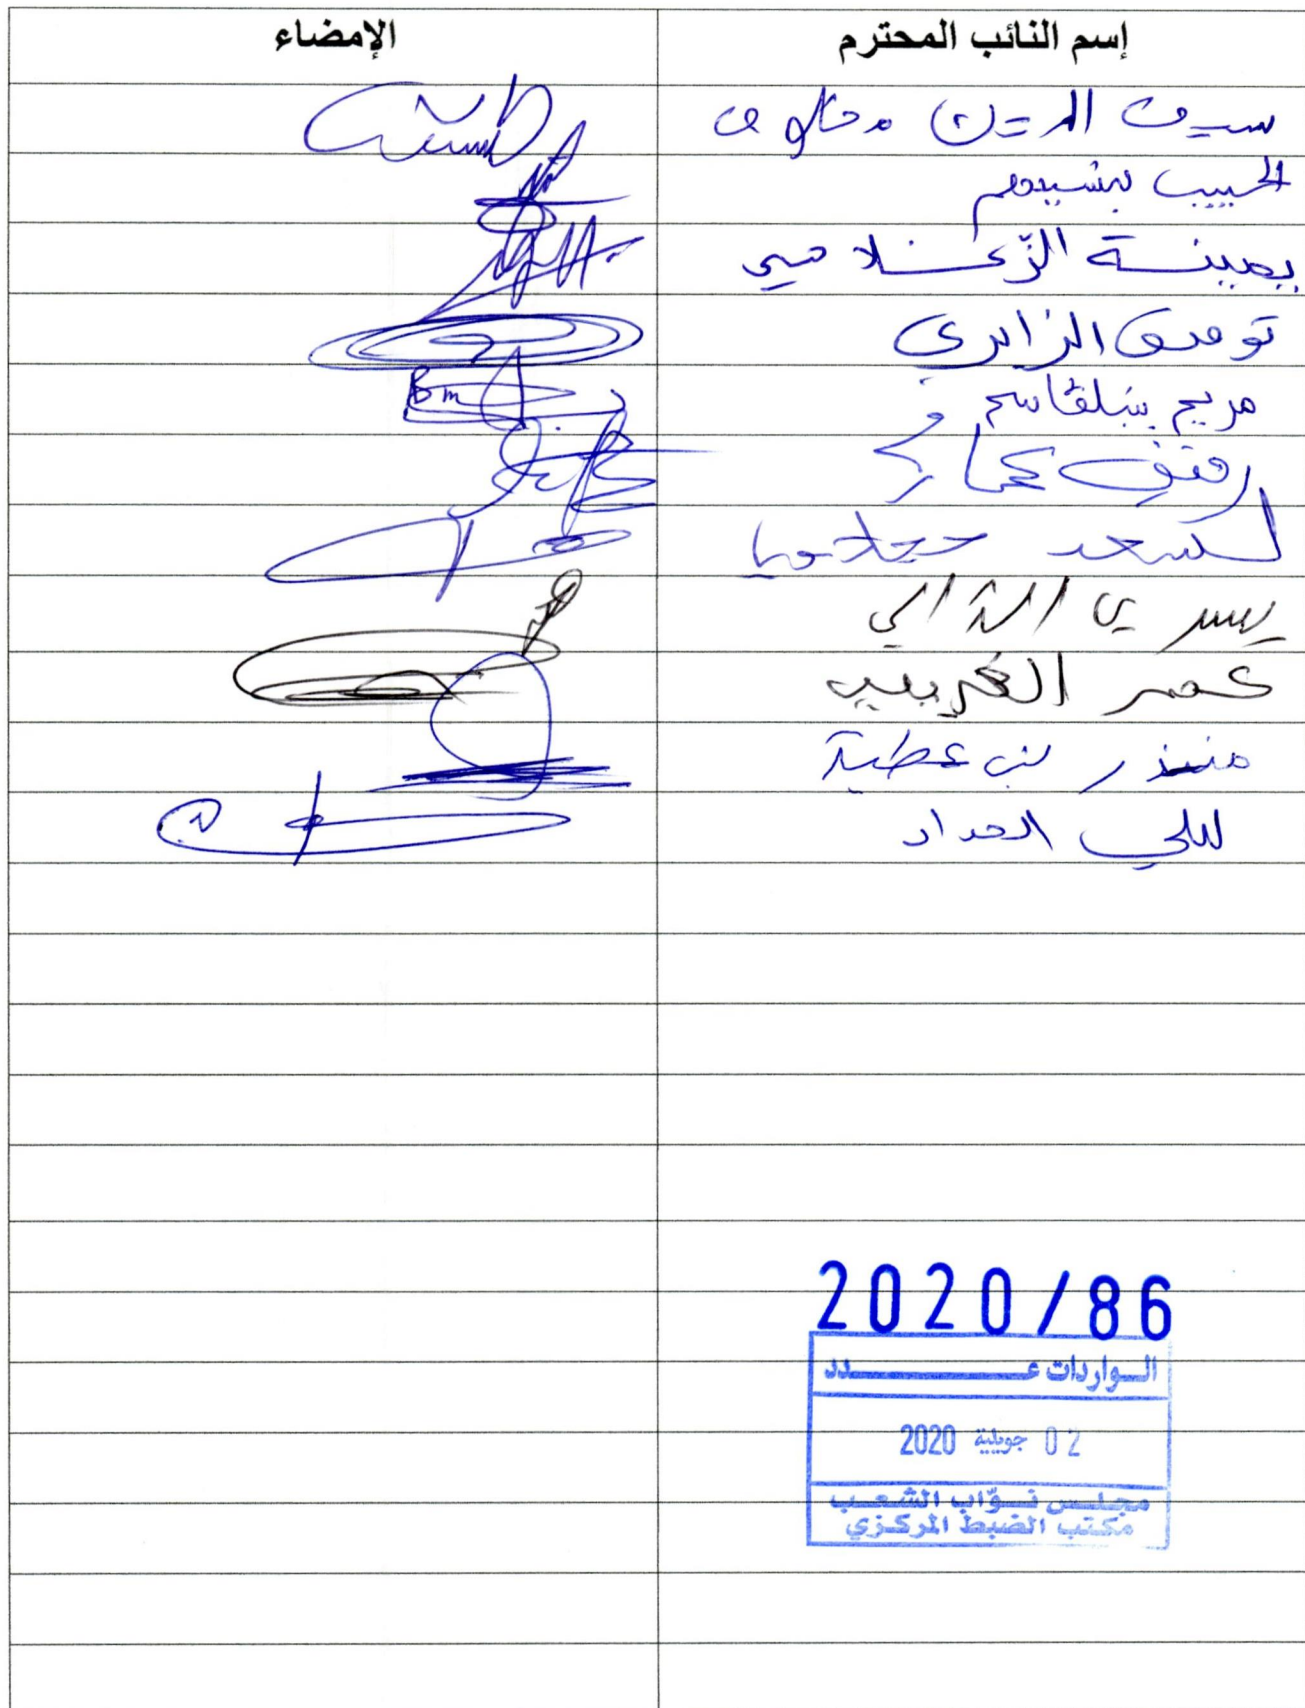 إسم النائب المحترم الإمضاء
سيف الدين مخلوف
الحبيب بنسيدهم
يمينة الزّغلامي
توفيق الزايري
مريم بنبلقاسم
رفيق عمارة
لسعد حجلاوي
يسري الدالي
عمر الغريبي
منذر بن عطية
ليلى الحداد
Bm
2020/86
الـواردات عـــدد
02 جويلية 2020
مجلـس نـوّاب الشـعـب
مكتب الضبط المركـزي